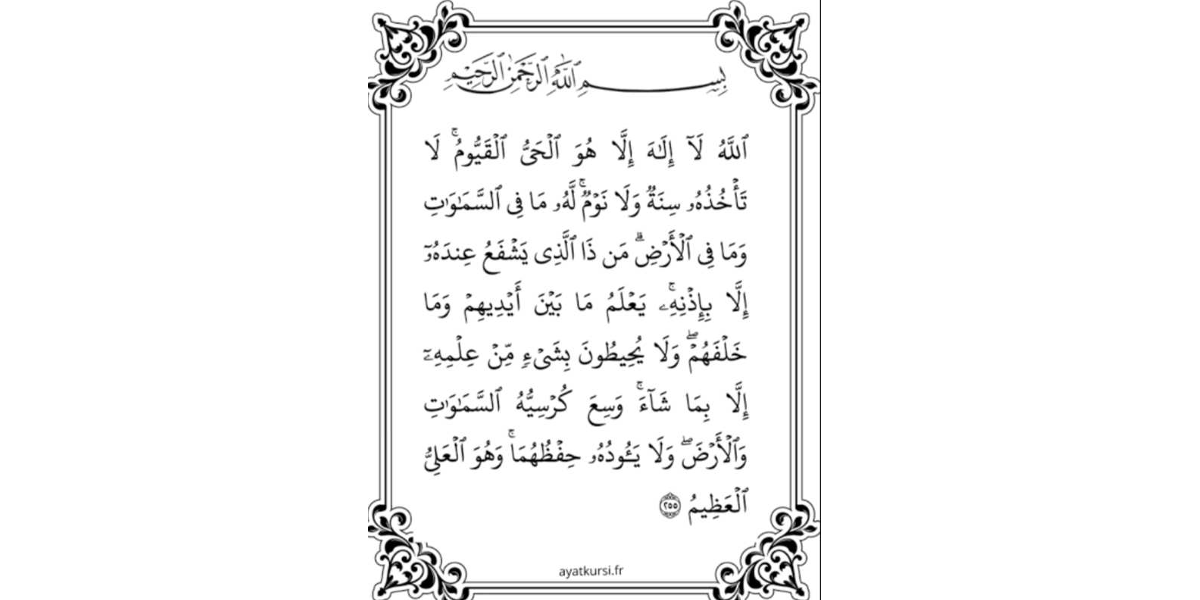 بِسْمِ ٱللَّهِ ٱلرَّحْمَٰنِ ٱلرَّحِيمِ
ٱللَّهُ لَآ إِلَٰهَ إِلَّا هُوَ ٱلْحَىُّ ٱلْقَيُّومُ ۚ لَا
تَأْخُذُهُۥ سِنَةٌ وَلَا نَوْمٌ ۚ لَّهُۥ مَا فِى ٱلسَّمَٰوَٰتِ
وَمَا فِى ٱلْأَرْضِ ۗ مَن ذَا ٱلَّذِى يَشْفَعُ عِندَهُۥٓ
إِلَّا بِإِذْنِهِۦ ۚ يَعْلَمُ مَا بَيْنَ أَيْدِيهِمْ وَمَا
خَلْفَهُمْ ۖ وَلَا يُحِيطُونَ بِشَىْءٍ مِّنْ عِلْمِهِۦٓ
إِلَّا بِمَا شَآءَ ۚ وَسِعَ كُرْسِيُّهُ ٱلسَّمَٰوَٰتِ
وَٱلْأَرْضَ ۖ وَلَا يَـُٔودُهُۥ حِفْظُهُمَا ۚ وَهُوَ ٱلْعَلِىُّ
ٱلْعَظِيمُ ٢٥٥
ayatkursi.fr